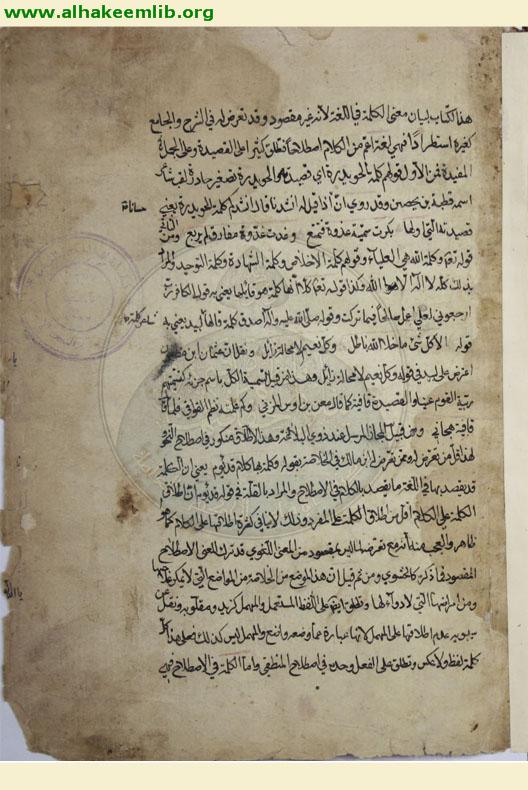 www.alhakeemlib.org
هذا كتاب لبيان معنى الكلمة في اللغة لانه غير مقصود وقد تعرض له في الشرح والجامع
كغيره استطرادا فهي لغة اعم من الكلام اصطلاحا فتطلق كثيرا على القصيدة وعلى الجملة
المفيدة فمن الاول قولهم كلمة الحويدرة اي قصيدته الحويدرة تصغير حادرة لقب شاعر
اسمه قطبة بن حصين وقد روي ان اذا قيل له انشدنا قال انشدكم كلمة الحويدرة يعني
قصيدته التي اولها بكرت سمية غدوة فتمتع وغدت غدوة مفارق لم يربع ومن الثاني
قوله تعالى وكلمة الله هي العليا وقولهم كلمة الاخلاص وكلمة الشهادة وكلمة التوحيد والمراد
بذلك كلمة لا اله الا الله وكذا قوله تعالى كلا انها كلمة هو قائلها يعني به قوله الكافر رب
ارجعوني لعلي اعمل صالحا فيما تركت وقوله صلى الله عليه وآله اصدق كلمة قالها لبيد يعني به
شاعر كلمة
قوله الا كل شئ ما خلا الله باطل وكل نعيم لا محالة زائل ونقل ان عثمان ابن مظعون
اعترض على لبيد في قوله وكل نعيم لا محالة زائل وهذا من قبيل تسمية الكل باسم جزئه كتسميتهم
ربيئة القوم عينا والقصيدة قافية كما قال معن بن اوس المزني وكم علمته نظم القوافي فلما قال
قافية هجاني ومن قبيل المجاز المرسل عند ذوي البلاغة وهذا الاطلاق منكور في اصطلاح النحو
لهذا قل من تعرض له وممن تعرض له ابن مالك في الخلاصة بقوله وكلمة بها كلام قد يؤم يعني ان الكلمة
قد يقصد بها في اللغة ما يقصد بالكلام في الاصطلاح والمراد بالقلة في قوله قد يؤم ان اطلاق
الكلمة على الكلام اقل من اطلاق الكلمة على المفرد وذلك لا ينافي كثرة اطلاقها على الكلام كما هو
ظاهر والعجب منه انه مع تعرضه لما ليس بمقصود من المعنى اللغوي قد ترك المعنى الاصطلاحي
المقصود في ذكر كالمحتوي ومن ثم قيل ان هذا الموضع من الخلاصة من المواضع التي لا
ومن امراضها التي لا دواء لها وتطلق ايضا على اللفظ المستعمل والمهمل كزيد ومقلوبه ونقل عن
سيبويه عدم اطلاقها على المهمل لانها عبارة عما وضعه واضع والمهمل ليس كذلك فعلى هذا كل
كلمة لفظ ولا عكس وتطلق على الفعل وحده في اصطلاح المنطقي واما الكلمة في الاصطلاح فهي